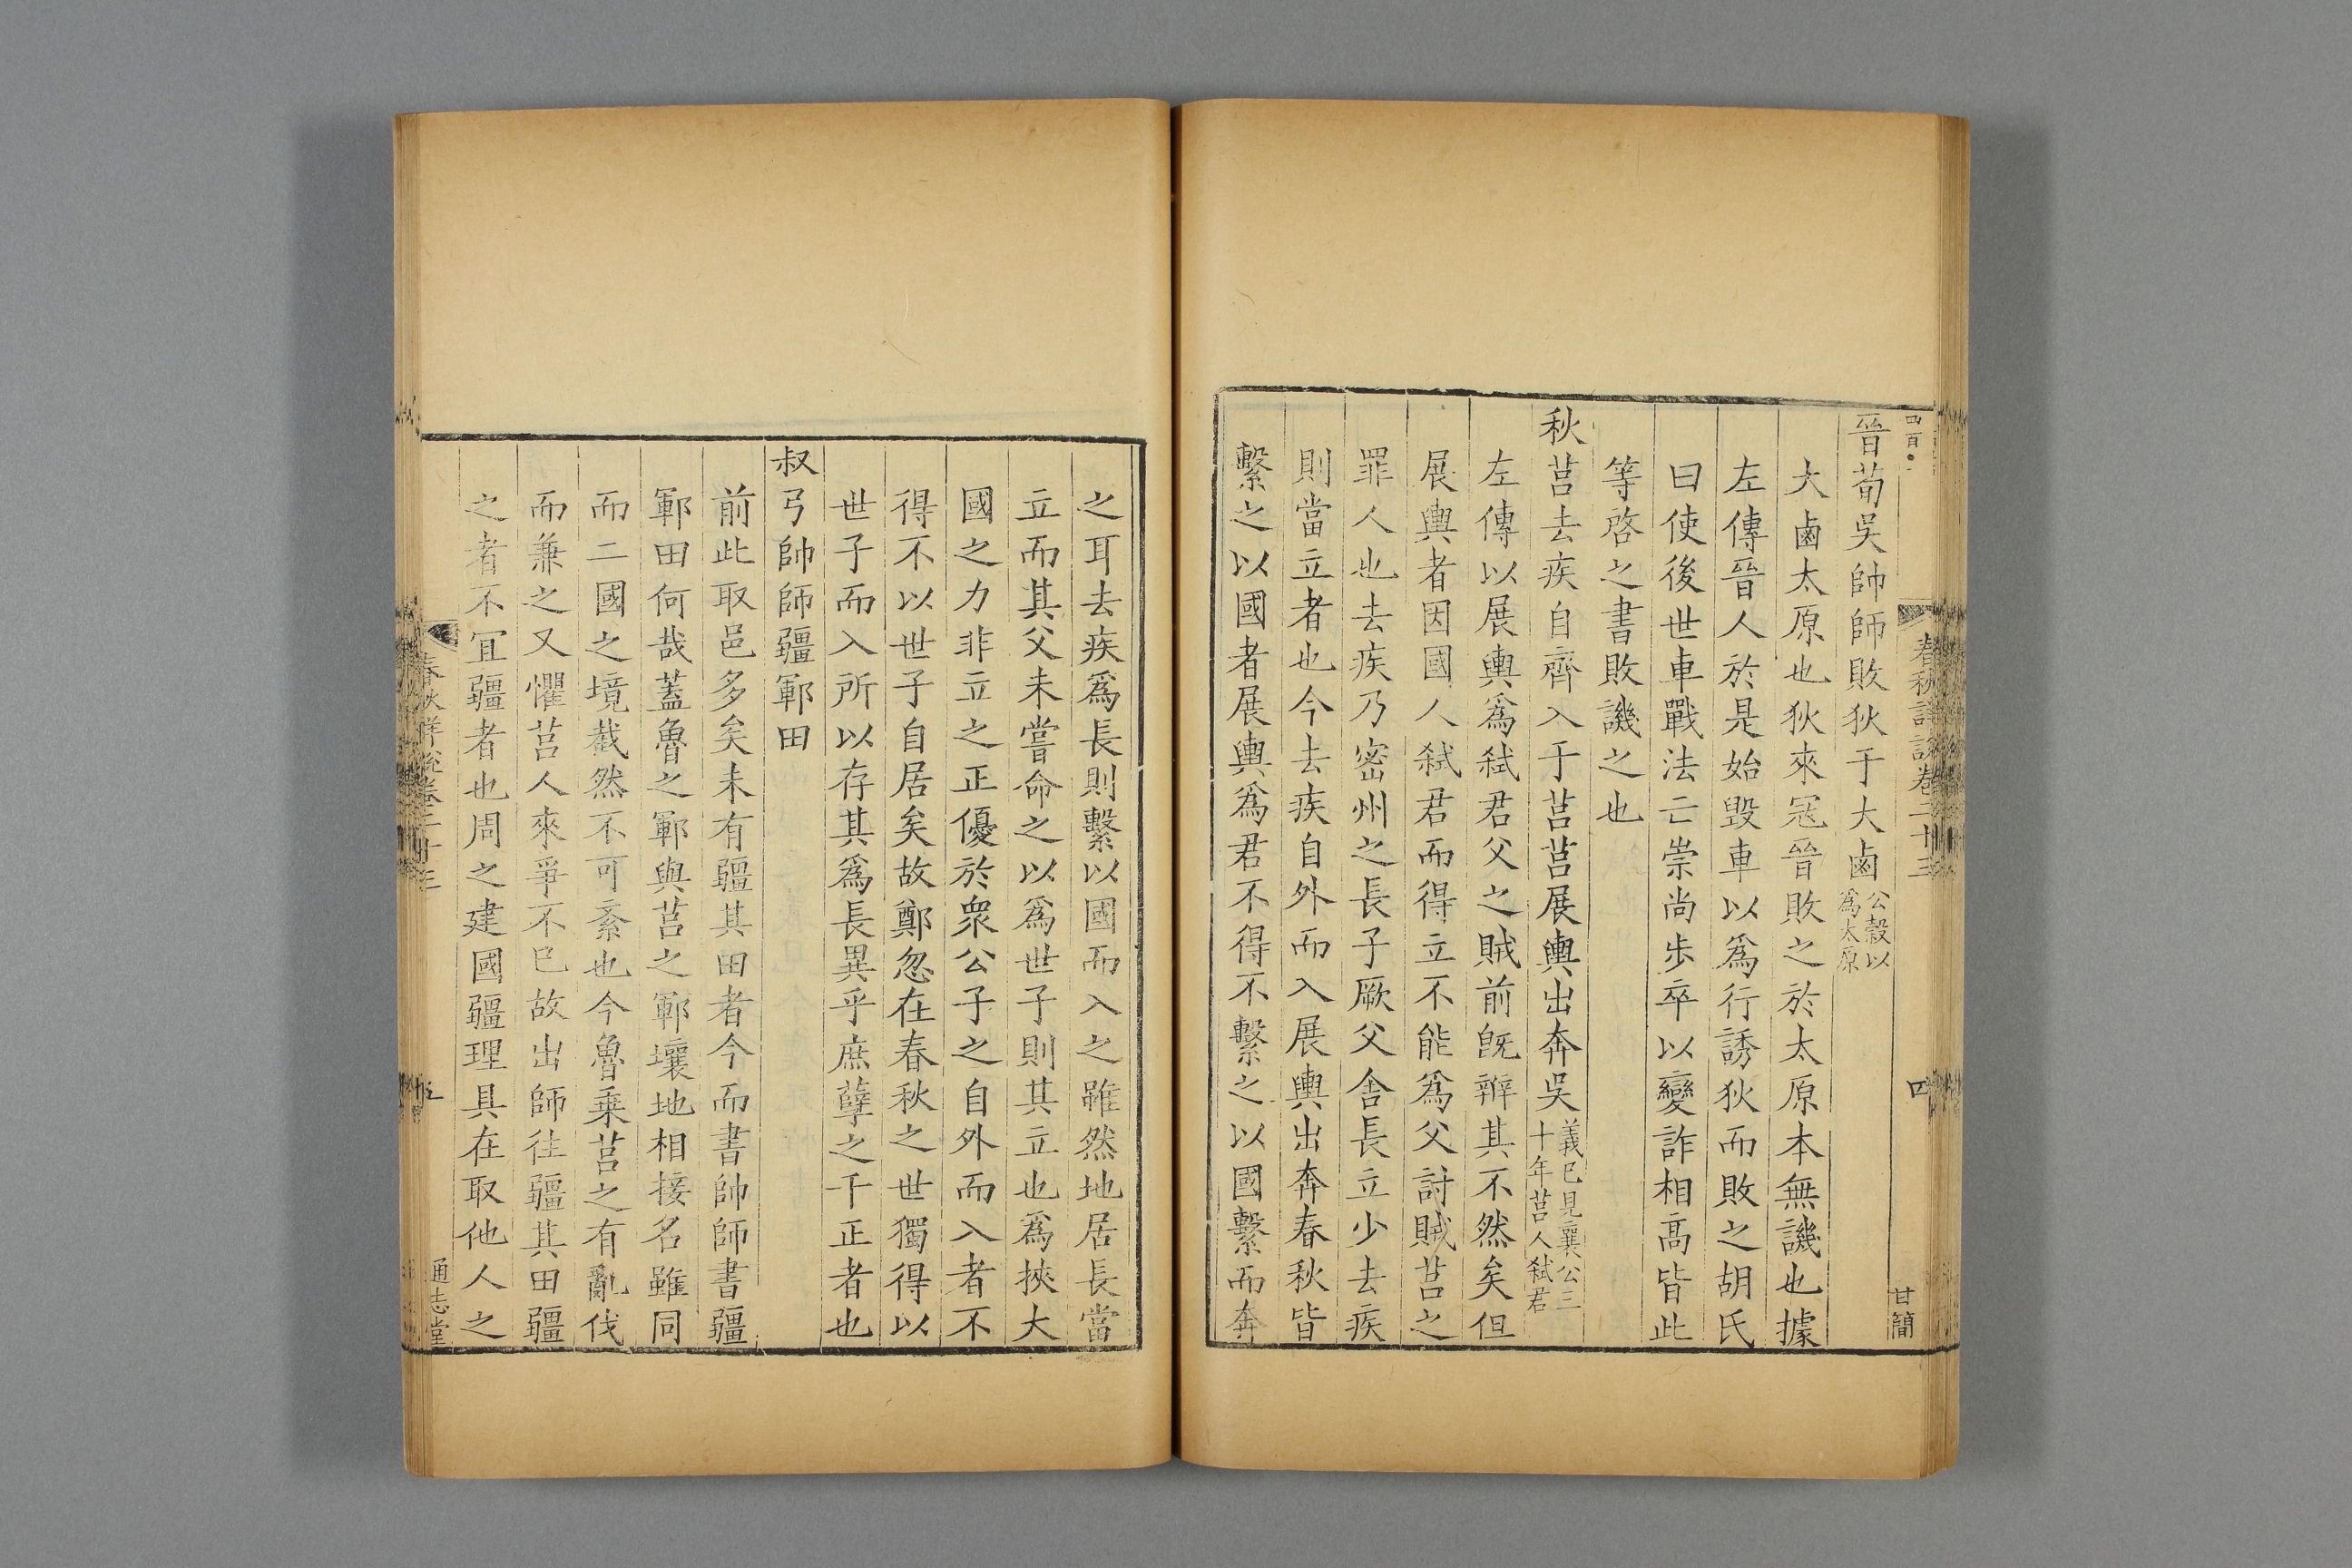 四百
春秋詳說卷二十三
四
甘簡
晉荀吳帥師敗狄于大鹵公穀以爲太原
大鹵太原也狄來冦晉敗之於太原本無譏也據
左傳晉人於是始毀車以爲行誘狄而敗之胡氏
曰使後世車戰法亡崇尚步卒以變詐相高皆此
等啓之書敗譏之也
秋莒去疾自齊入于莒莒展輿出奔吳義已見襄公三十年莒人弒君
左傳以展輿爲弒君父之賊前旣辨其不然矣但
展輿者因國人弒君而得立不能爲父討賊莒之
罪人也去疾乃密州之長子厥父舍長立少去疾
則當立者也今去疾自外而入展輿出奔春秋皆
繫之以國者展輿爲君不得不繫之以國繫而奔
之耳去疾爲長則繫以國而入之雖然地居長當
立而其父未嘗命之以爲世子則其立也爲挾大
國之力非立之正優於衆公子之自外而入者不
得不以世子自居矣故鄭忽在春秋之世獨得以
世子而入所以存其爲長異乎庶孽之干正者也
叔弓帥師疆鄆田
前此取邑多矣未有疆其田者今而書帥師書疆
鄆田何哉蓋魯之鄆與莒之鄆壤地相接名雖同
而二國之境截然不可紊也今魯乗莒之有亂伐
而兼之又懼莒人來爭不已故出師徃疆其田疆
之者不冝疆者也周之建國疆理具在取他人之
春秋詳說卷二十三
五
通志堂